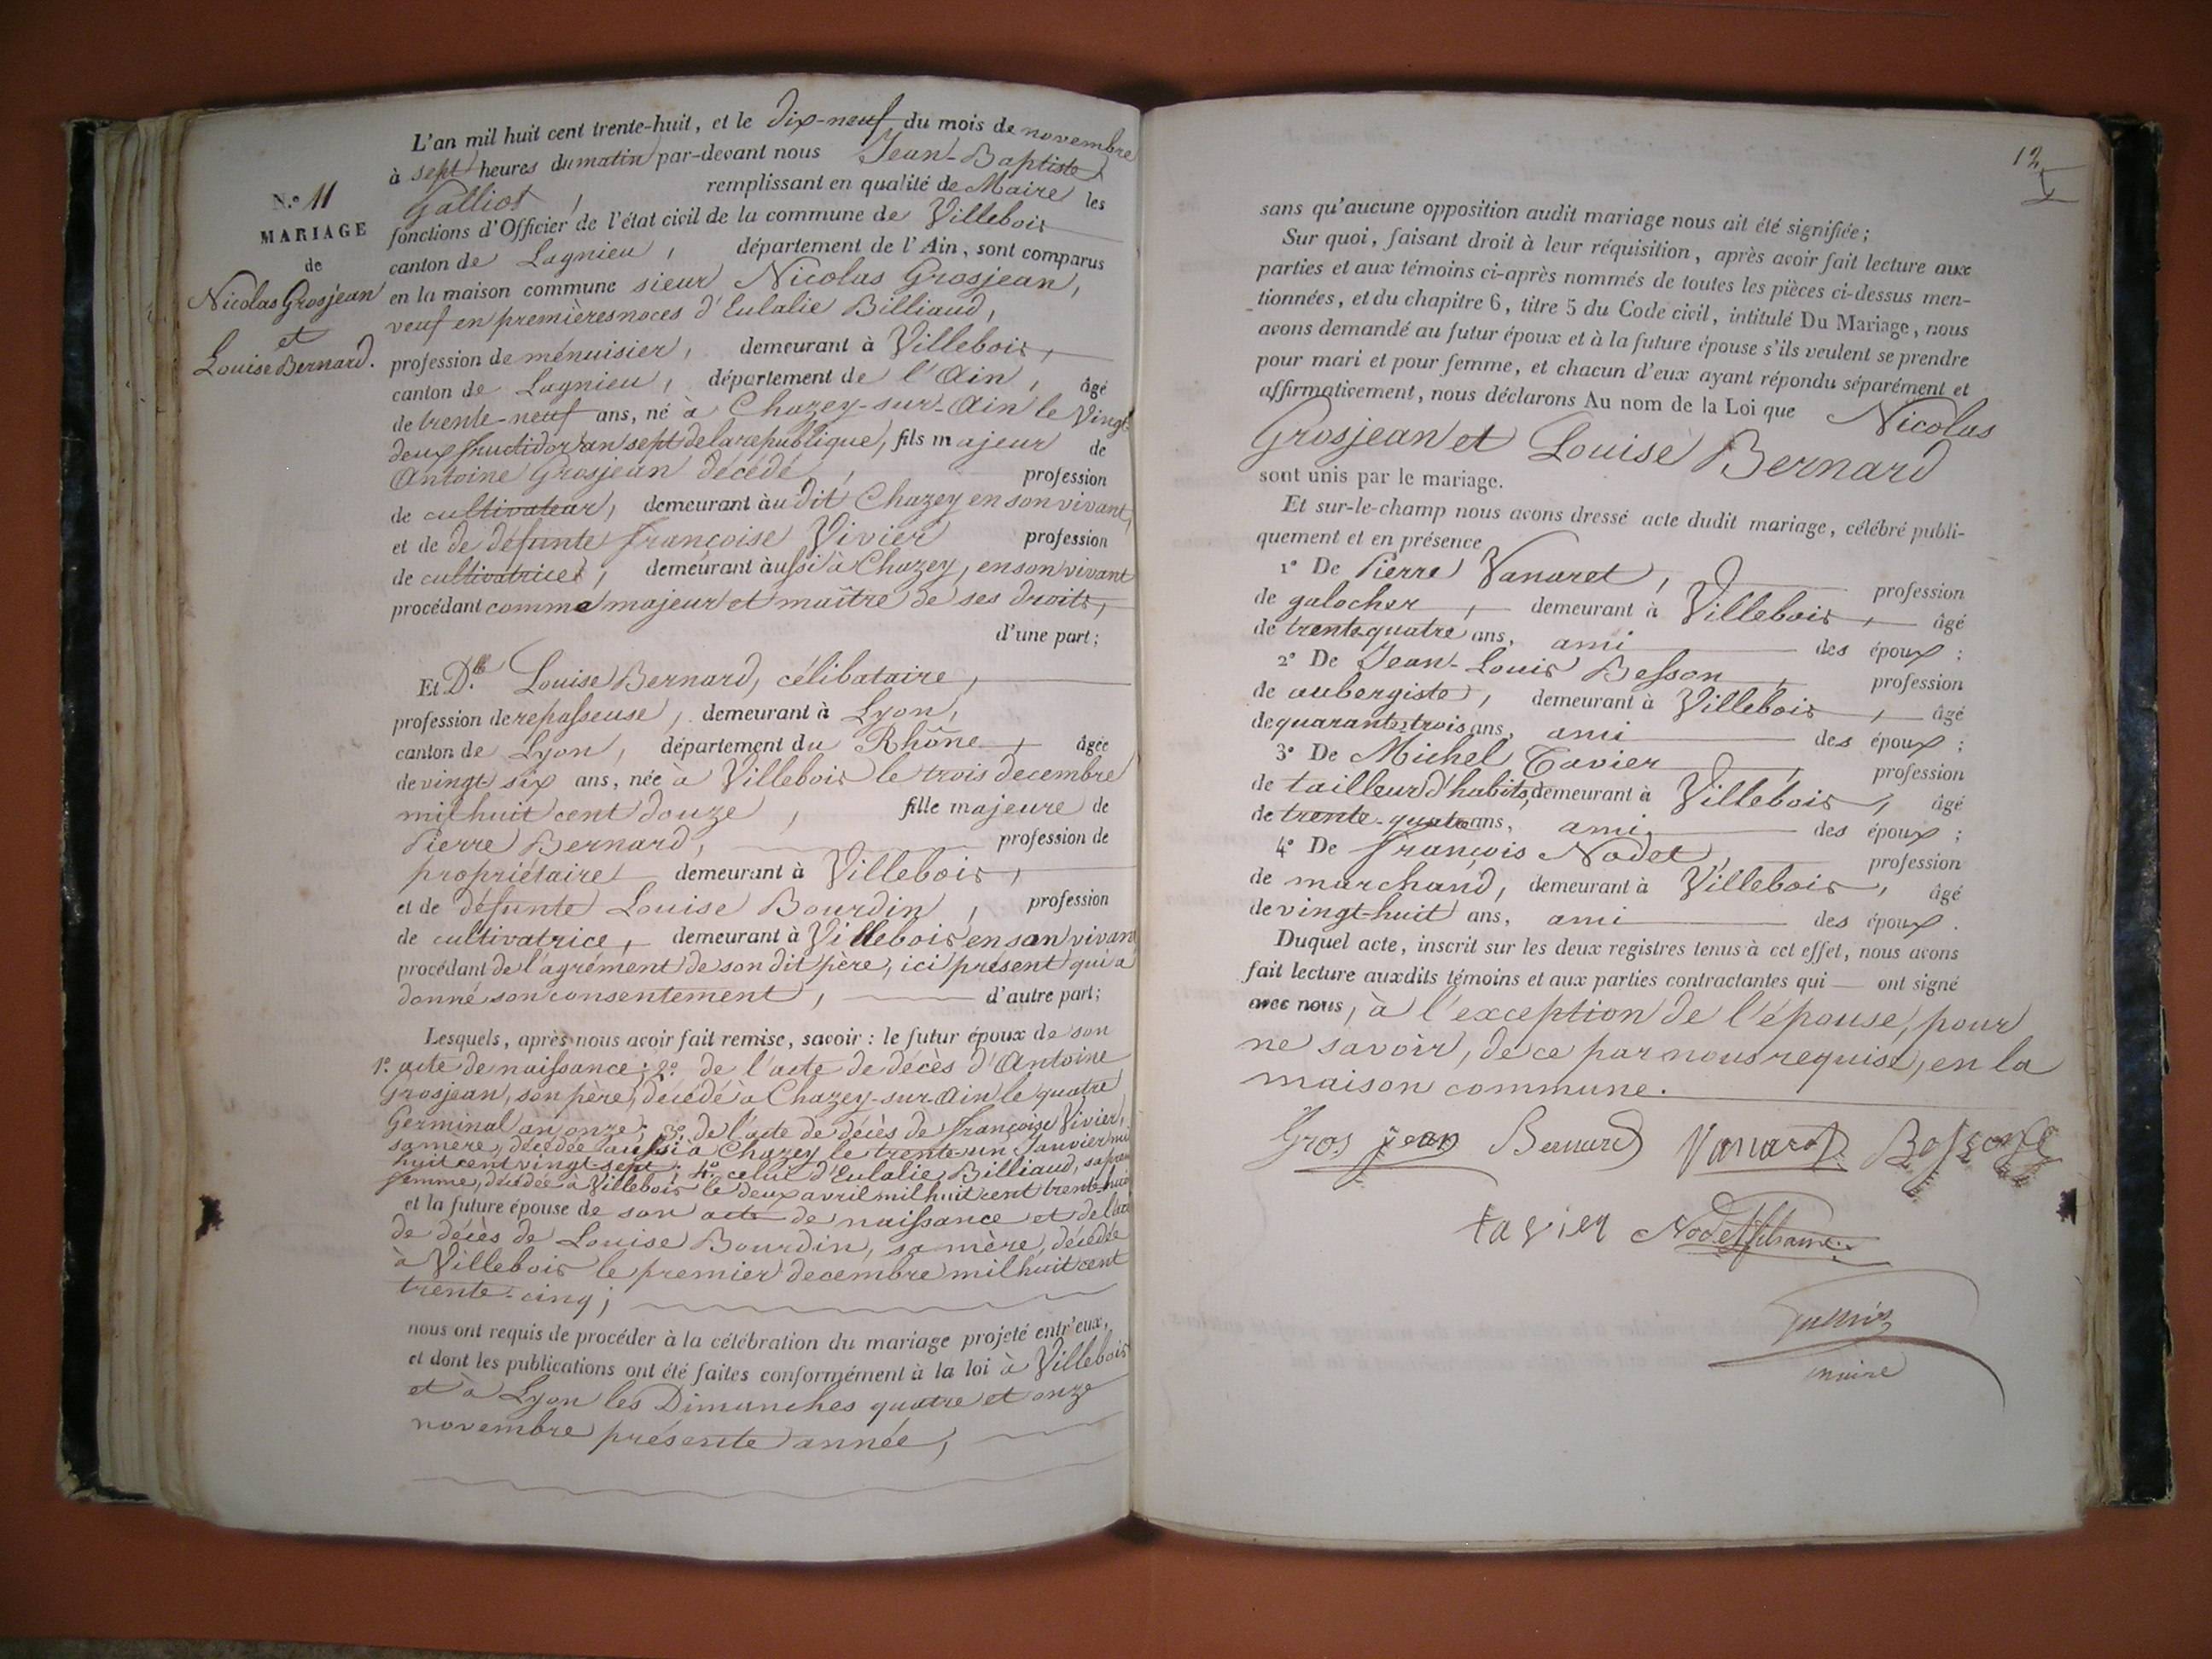 N.° 11
MARIAGE
de
Nicolas Grosjean
et
Louise Bernard.
L'an mil huit cent trente-huit, et le dix-neuf du mois de novembre
à sept heures du matin par-devant nous Jean-Baptiste
Galliot, remplissant en qualité de Maire les
fonctions d'Officier de l'état civil de la commune de Villebois
canton de Lagnieu, département de l'Ain, sont comparus
en la maison commune sieur Nicolas Grosjean,
veuf en premières noces d'Eulalie Billiaud,
profession de ménuisier, demeurant à Villebois,
canton de Lagnieu, département de l'Ain, âgé
de trente-neuf ans, né à Chazey-sur-Ain le Vingt-
deux fructidor an sept de la republique, fils majeur de
Antoine Grosjean décédé, profession
de cultivateur, demeurant àu dit Chazey en son vivant,
et de de défunte françoise Vivier profession
de cultivatrice, demeurant àussi à Chazey, en son vivant
procédant comme majeur et maître de ses droits,
d'une part;
Et D.lle Louise Bernard, célibataire,
profession de repasseuse, demeurant à Lyon,
canton de Lyon, département du Rhône, âgée
de vingt six ans, née à Villebois le trois decembre
mil huit cent douze, fille majeure de
Pierre Bernard, profession de
propriétaire demeurant à Villebois,
et de défunte Louise Bourdin, profession
de cultivatrice, demeurant à Villebois en son vivant
procédant de l'agrément de son dit père, ici présent qui a
donné son consentement, d'autre part;
Lesquels, après nous avoir fait remise, savoir : le futur époux de son
1.° acte de naissance; 2.° de l'acte de décès d'Antoine
Grosjean, son père, décédé à Chazey-sur-Ain le quatre
Germinal an onze; 3.° de l'acte de décès de françoise Vivier,
sa mère, décédée aussi à Chazey le trente-un Janvier mil
huit cent vingt-sept; 4.° celui d'Eulalie Billiaud, sa
femme, décédée à Villebois le deux avril mil huit cent trente-huit
et la future épouse de son acte de naissance et de
de décès de Louise Bourdin, sa mère, décédée
à Villebois le premier decembre mil huit cent
trente-cinq;
nous ont requis de procéder à la célébration du mariage projeté entr'eux,
et dont les publications ont été faites conformément à la loi à Villebois
et à Lyon les Dimanches quatre et onze
novembre présente année,
12
sans qu'aucune opposition audit mariage nous ait été signifiée;
Sur quoi, faisant droit à leur réquisition, après avoir fait lecture aux
parties et aux témoins ci-après nommés de toutes les pièces ci-dessus men-
tionnées, et du chapitre 6, titre 5 du Code civil, intitulé Du Mariage, nous
avons demandé au futur époux et à la future épouse s'ils veulent se prendre
pour mari et pour femme, et chacun d'eux ayant répondu séparément et
affirmativement, nous déclarons Au nom de la Loi que Nicolas
Grosjean et Louise Bernard
sont unis par le mariage.
Et sur-le-champ nous avons dressé acte dudit mariage, célébré publi-
quement et en présence
1° De Pierre Vanaret, profession
de galocher, demeurant à Villebois, âgé
de trente quatre ans, ami des époux;
2° De Jean-Louis Besson, profession
de aubergiste, demeurant à Villebois, âgé
de quarante trois ans, ami des époux;
3° De Michel Tavier, profession
de tailleur d'habits, demeurant à Villebois, âgé
de trente-quatre ans, ami, des époux;
4° De françois Nodet, profession
de marchand, demeurant à Villebois, âgé
de vingt-huit ans, ami des époux.
Duquel acte, inscrit sur les deux registres tenus à cet effet, nous avons
fait lecture auxdits témoins et aux parties contractantes qui — ont signé
avec nous, à l'exception de l'épouse, pour
ne savoir, de ce par nous requise, en la
maison commune.
Gros jean Bernard Vanaret Besson
tavier Nodet
maire